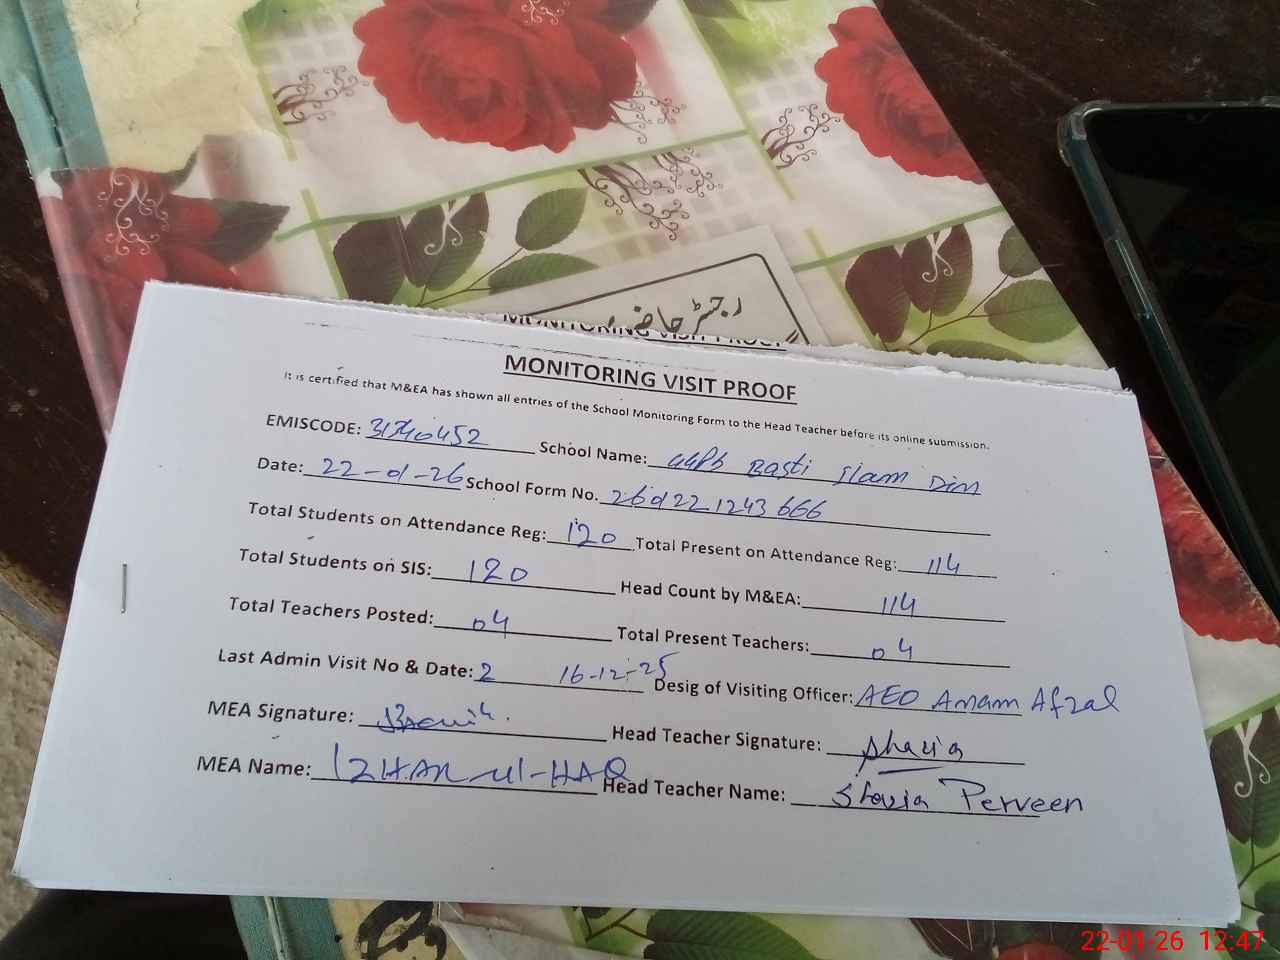 رجسٹر حاضری
MONITORING VISIT PROOF
MONITORING VISIT PROOF
It is certified that M&EA has shown all entries of the School Monitoring Form to the Head Teacher before its online submission.
EMISCODE: 31340452 School Name: GGPS Basti Islam Din
Date: 22-01-26 School Form No. 260122 1243 666
Total Students on Attendance Reg: 120 Total Present on Attendance Reg: 114
Total Students on SIS: 120 Head Count by M&EA: 114
Total Teachers Posted: 04 Total Present Teachers: 04
Last Admin Visit No & Date: 2 16-12-25 Desig of Visiting Officer: AEO Anam Afzal
MEA Signature: Head Teacher Signature: Shazia
MEA Name: IZHAR-ul-HAQ Head Teacher Name: Shazia Perveen
22-01-26 12:47